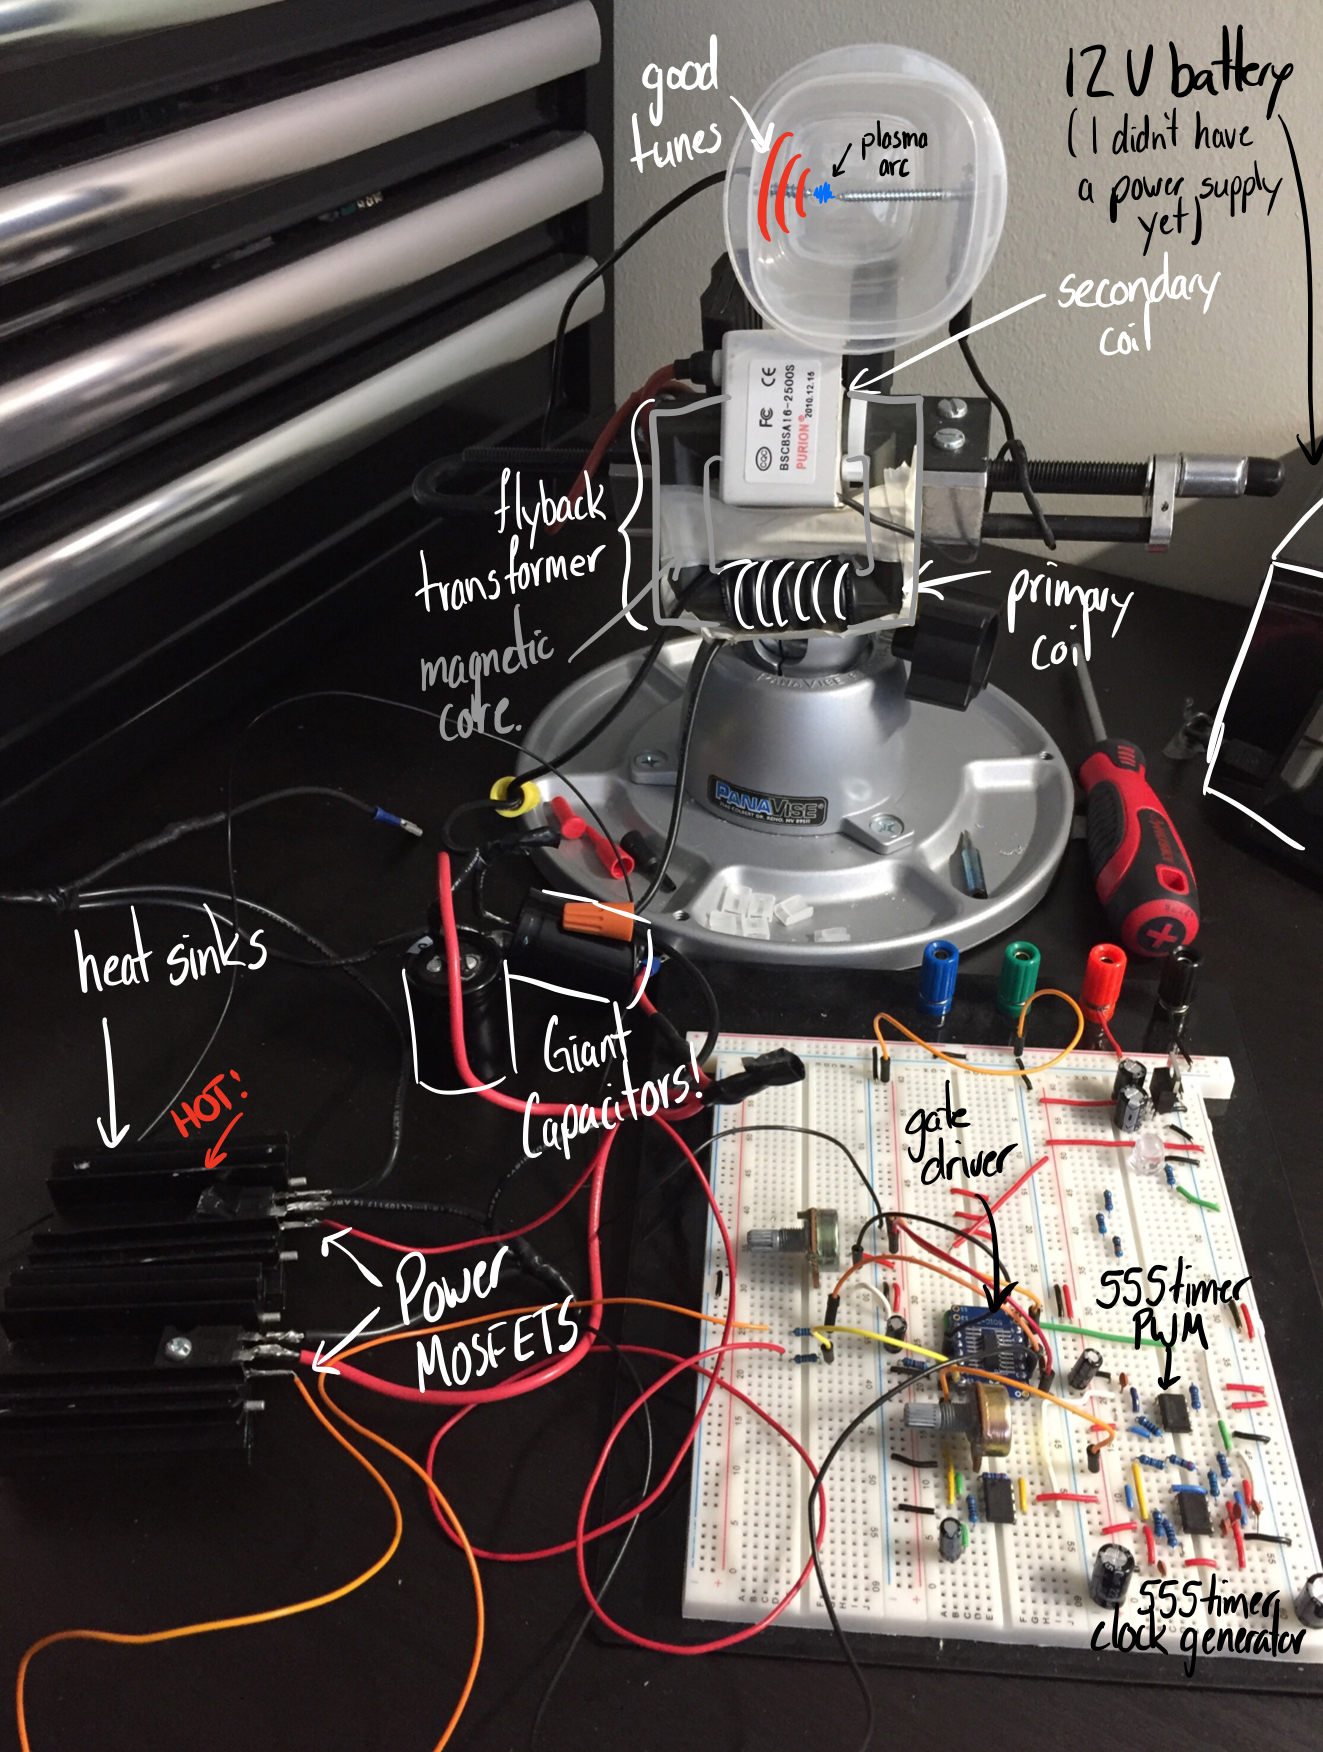 good
tunes
plasma
arc
12V battery
(I didn't have
a power supply
yet)
secondary
coil
CQC FC CE
BSCBSA16-2500S
PURION® 2010.12.16
flyback
transformer
primary
coil
magnetic
core.
PANAVISE
PANAVISE®
heat sinks
HOT!
Giant
Capacitors!
gate
driver
Power
MOSFETS
555 timer
PWM
555 timer
clock generator